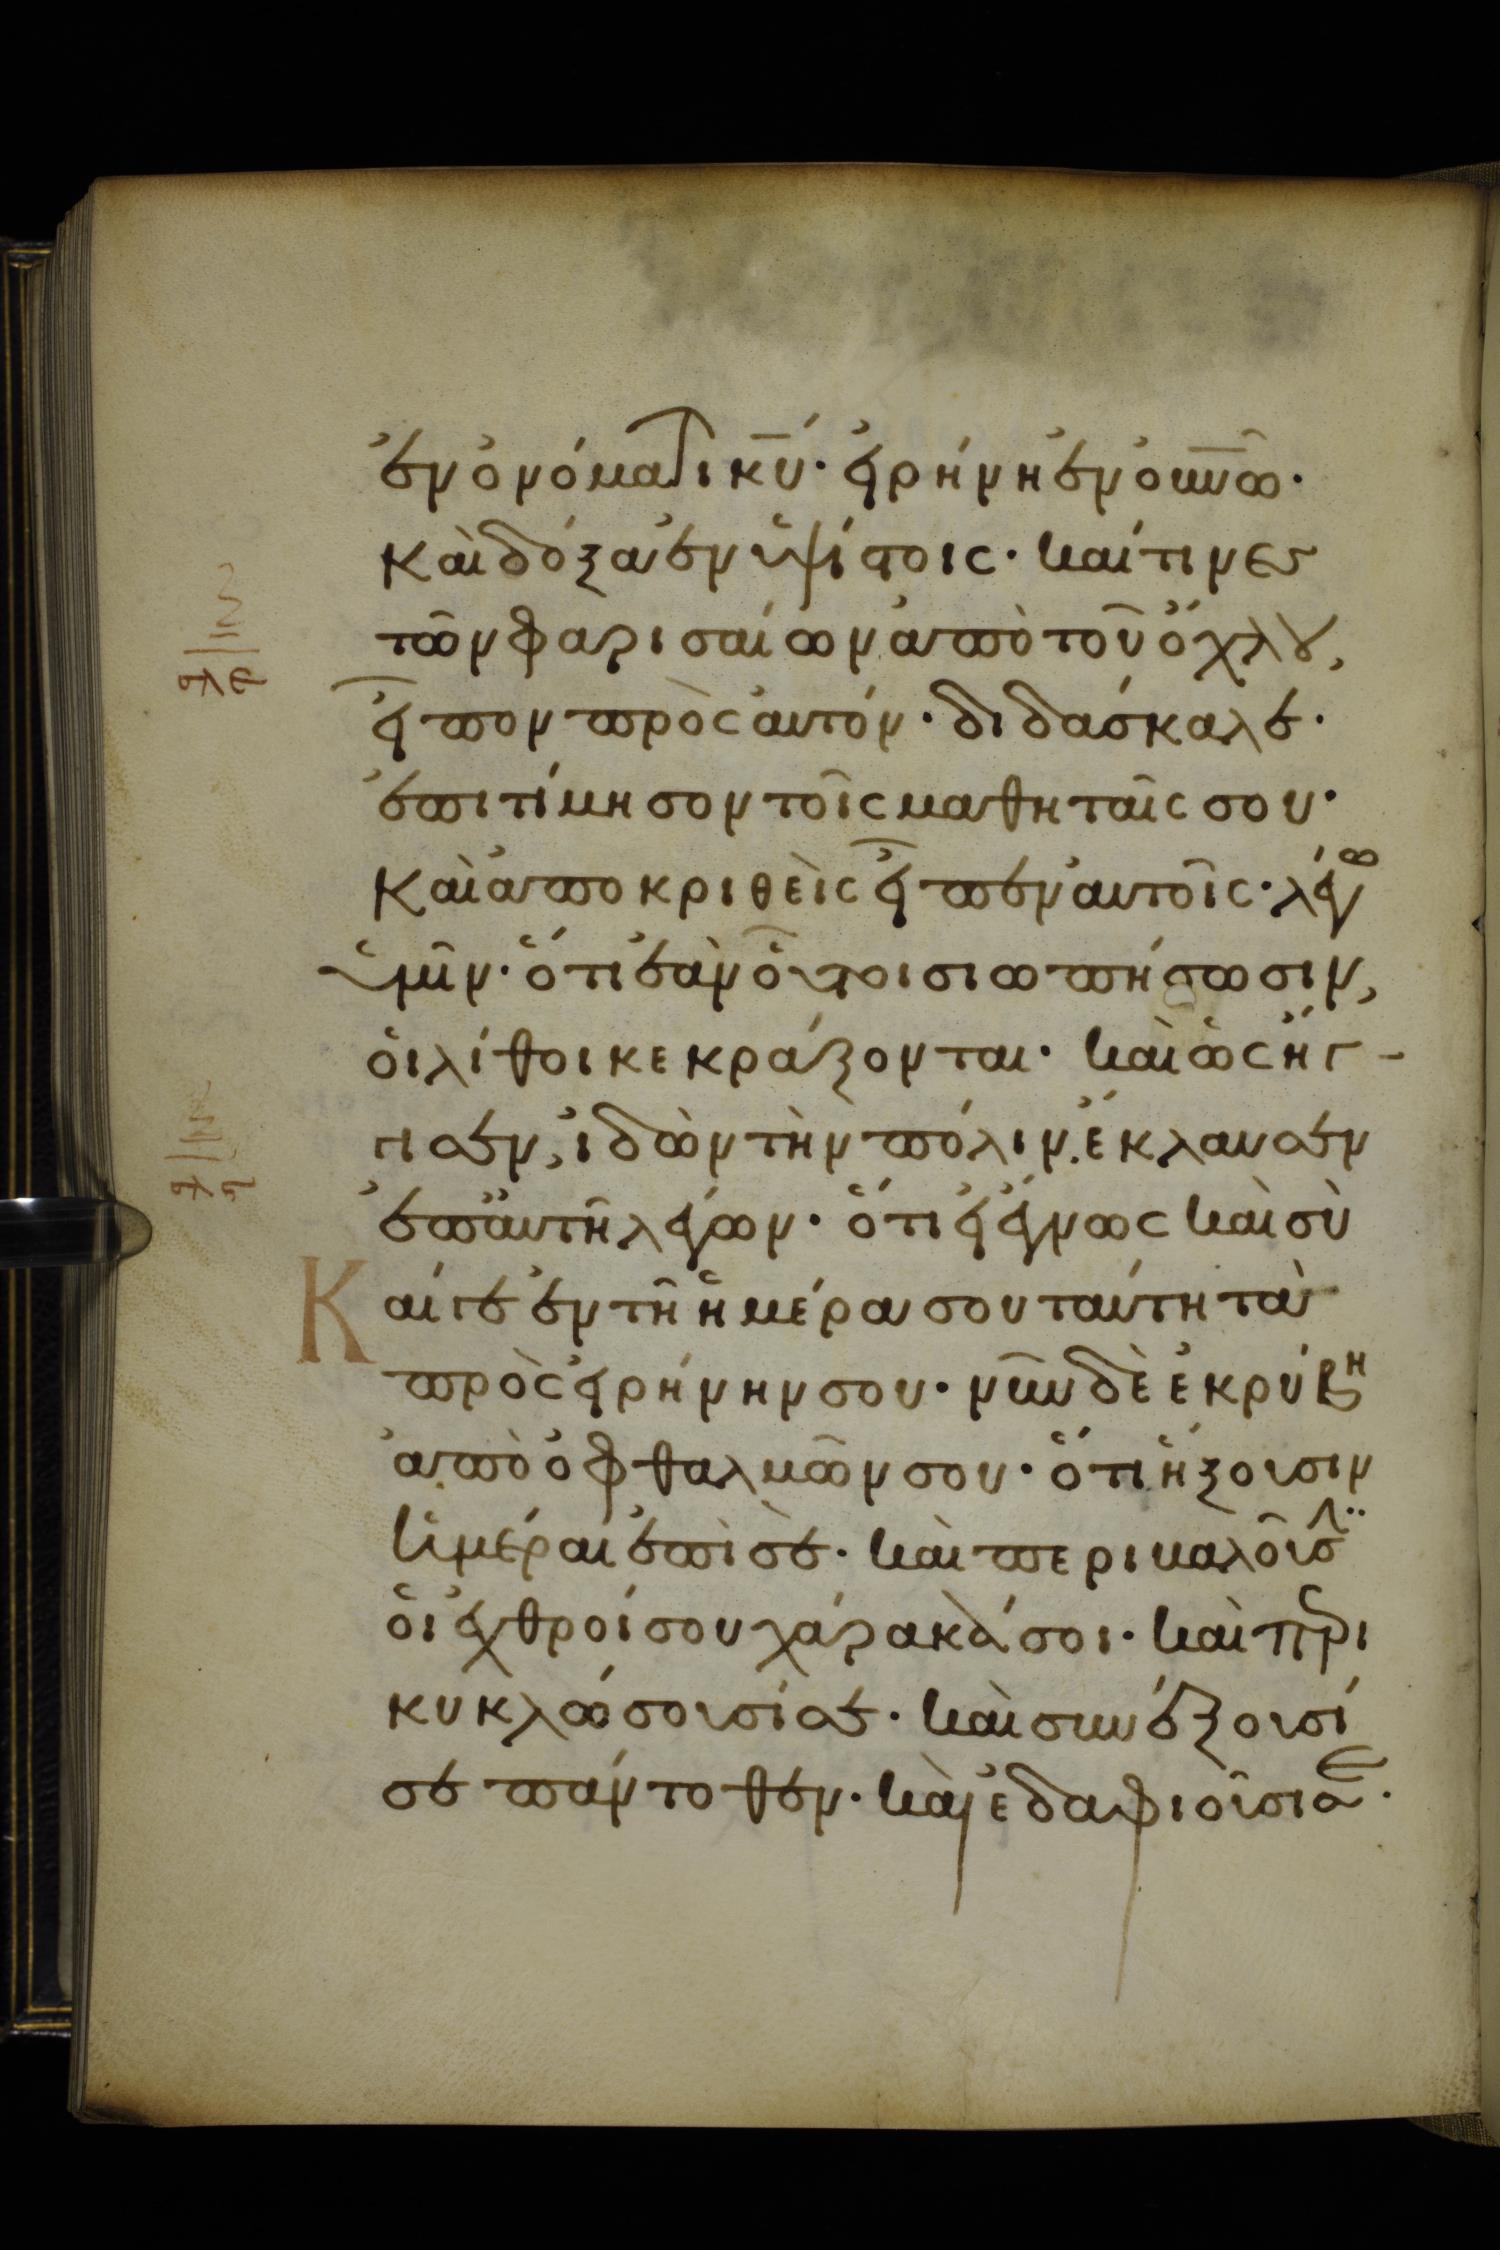 ἐν ὀνόματι κ̅υ̅· εἰρήνη ἐν ο̅υ̅ν̅ῶ·
καὶ δόξα ἐν ὑψίστοις· καί τινες
τῶν φαρισαίων ἀπὸ τοῦ ὄχλου,
εἶπον πρὸς αὐτόν· διδάσκαλε·
ἐπιτίμησον τοῖς μαθηταῖς σου·
καὶ ἀποκριθεὶς εἶπεν αὐτοῖς· λέγω
ὑμῖν· ὅτι ἐὰν οὗτοι σιωπήσωσιν,
οἱ λίθοι κεκράξονται· καὶ ὡς ἤγ-
γισεν, ἰδὼν τὴν πόλιν, ἔκλαυσεν
ἐπ' αὐτῇ λέγων· ὅτι εἰ ἔγνως καὶ σὺ
Καί γε ἐν τῇ ἡμέρα σου ταύτη τὰ
πρὸς εἰρήνην σου· νῦν δὲ ἐκρύβη
ἀπὸ ὀφθαλμῶν σου· ὅτι ἥξουσιν
ἡμέραι ἐπὶ σὲ· καὶ περικαλοῦσιν
οἱ ἐχθροί σου χάρακά σοι· καὶ περι
κυκλώσουσί σε· καὶ συνέξουσί
σε πάντοθεν· καὶ ἐδαφιοῦσί σε·